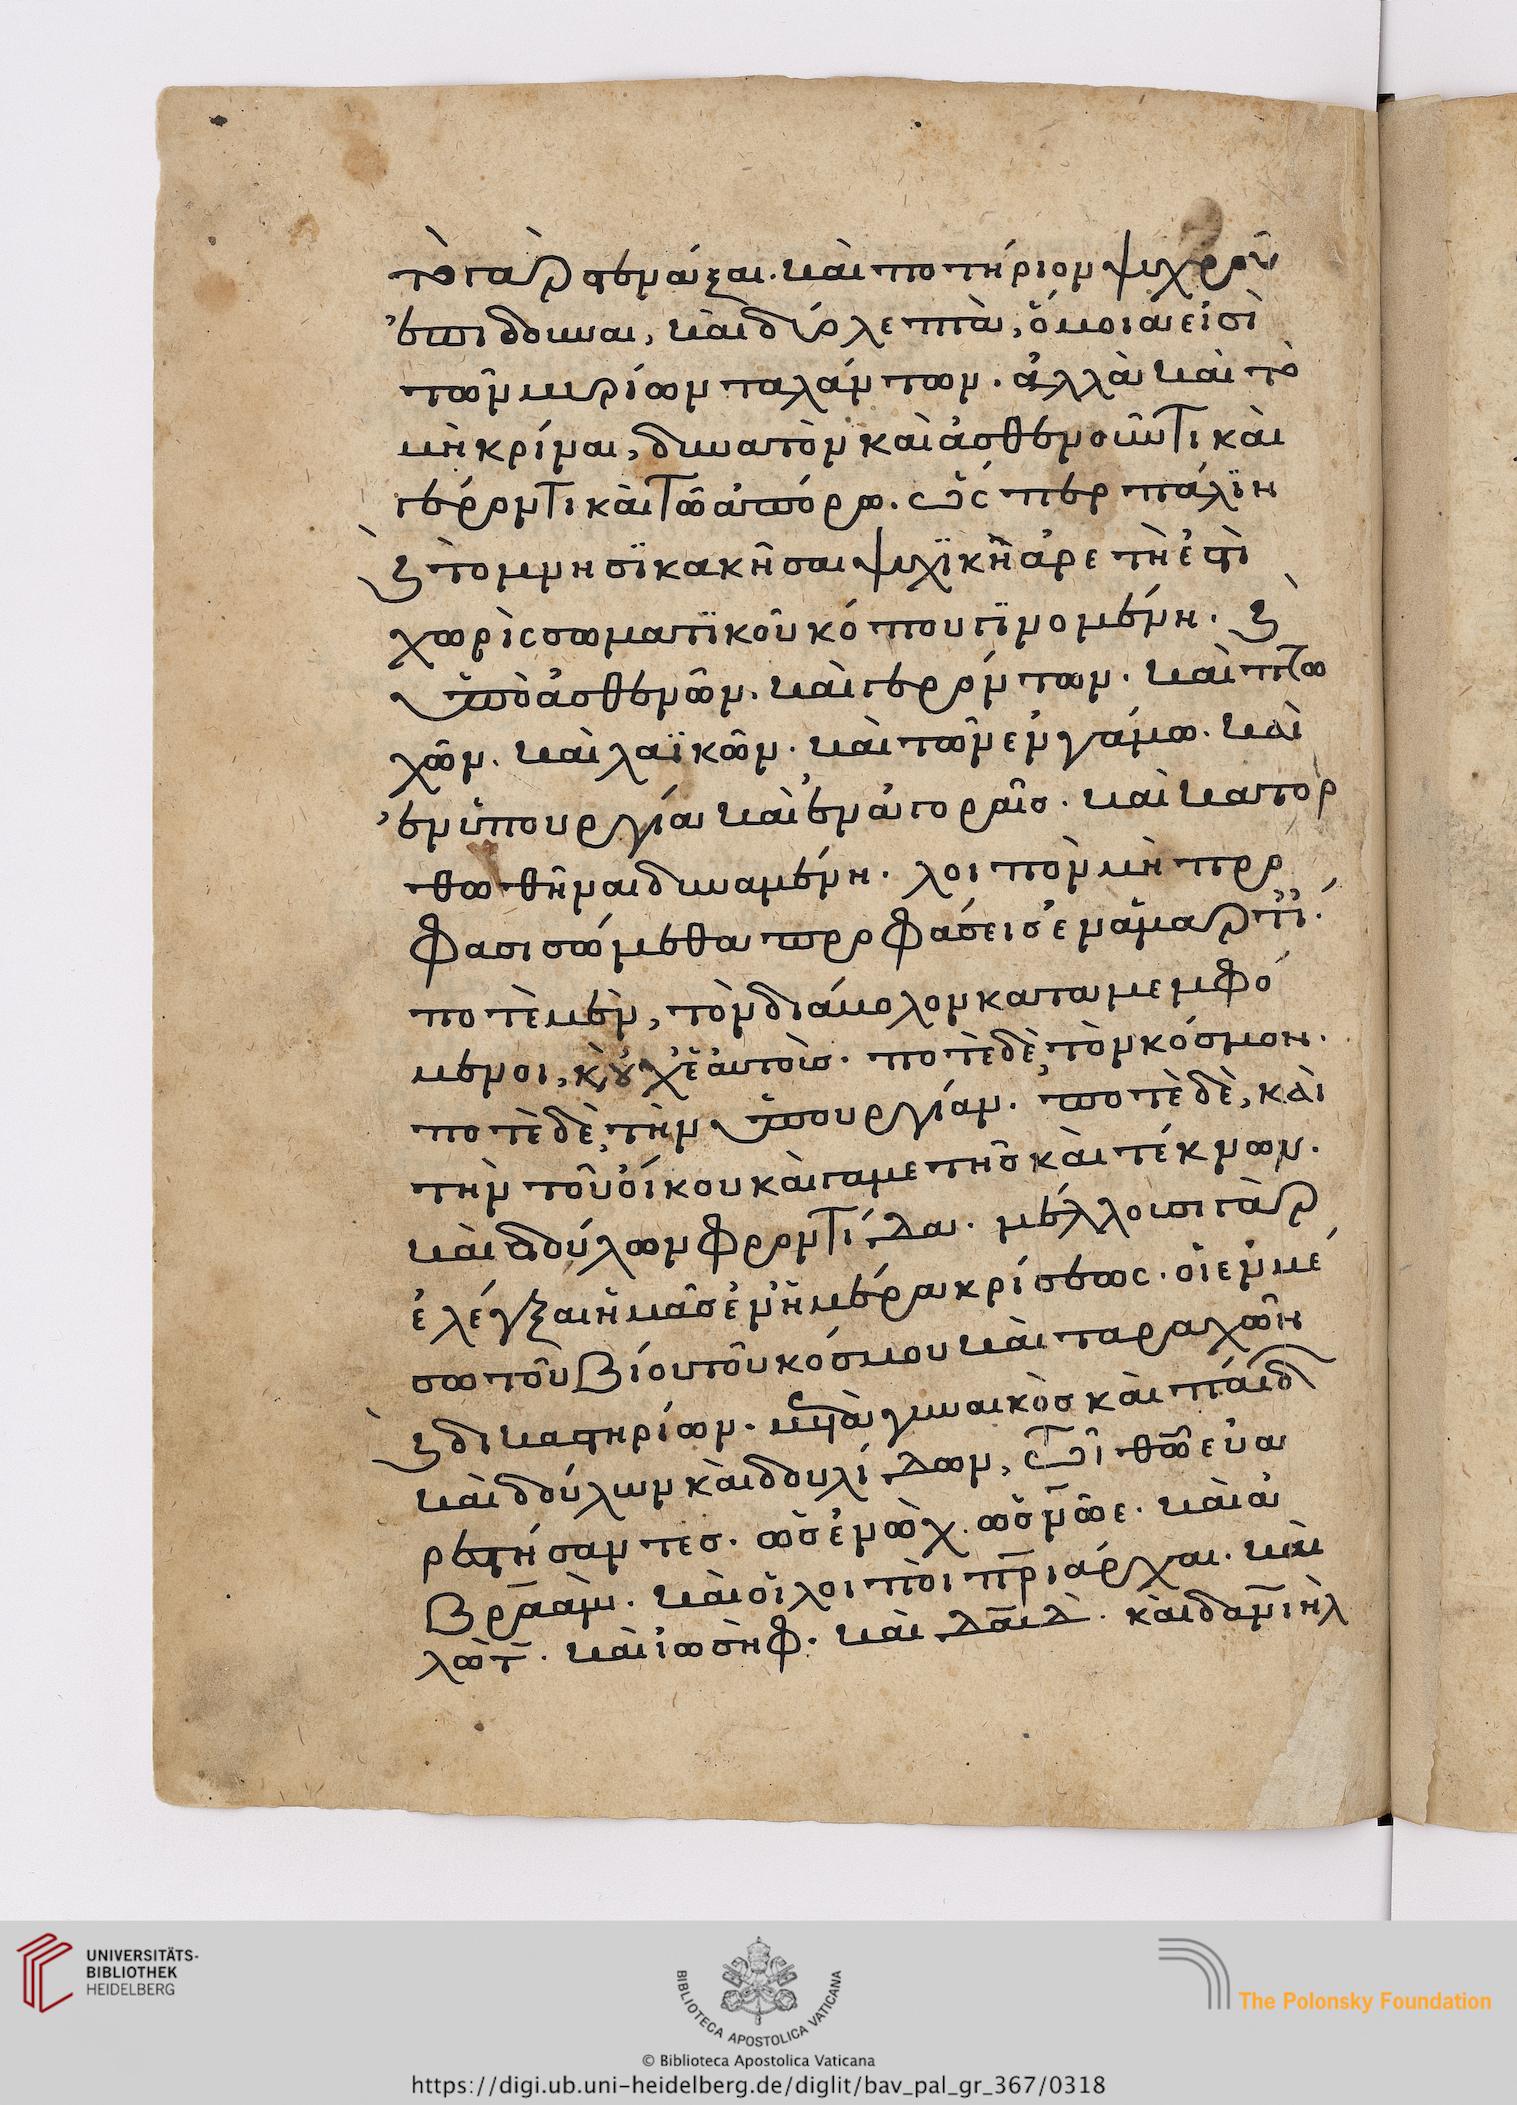 τὸ γὰρ στενάξαι. καὶ ποτήριον ψυχροῦ
ἐπιδοῦναι, καὶ δύο λεπτὰ, ὅμοια εἰσὶ
τῶν μυρίων ταλάντων. ἀλλὰ καὶ τὸ
μὴ κρίναι, δυνατὸν καὶ ἀσθενοῦντι καὶ
γέροντι καὶ τῶ ἀπόρω. ὥς περ πάλϊν
ϗ τὸ μνησϊκακῆσαι ψυχϊκὴ ἀρετὴ ἐστὶ
χωρὶς σωματϊκοῦ κόπου γϊνομένη. ϗ
ὑπὸ ἀσθενῶν. καὶ γερόντων. καὶ πτω
χῶν. καὶ λαϊκῶν. καὶ τῶν ἐν γάμω. καὶ
ἐν ὑπουργία καὶ ἐν ἀγοραῖσ. καὶ κατορ
θωθῆναι δυναμένη. λοιπὸν μὴ προ
φασισώμεθα προφάσεισ ἐν ἁμαρτί.
ποτὲ μὲν, τὸν διάβολον καταμεμφό
μενοι, κ οὐχ ἑαυτοῖσ. ποτὲ δὲ, τὸν κόσμον.
ποτὲ δὲ, τὴν ὑπουργίαν. ποτὲ δὲ, καὶ
τὴν τοῦ οἴκου καὶ γαμετῆσ καὶ τέκνων.
καὶ δούλων φροντίδα. μέλλουσι γὰρ
ἐλέγξαι ἡμᾶσ ἐν ἡμέρα κρίσεως. οἱ ἐν μέ
σω τοῦ βίου τοῦ κόσμου καὶ ταραχῶν
ϗ δικαστηρίων. μετὰ γυναικὸσ καὶ παίδ
καὶ δούλων καὶ δουλίδων, τῶ θῶ εὐα
ρεστήσαντεσ. ὡσ ἐνὼχ. ὡσ νῶε. καὶ ἀ
βραάμ. καὶ οἱ λοιποὶ πριάρχαι. καὶ
λὼτ. καὶ ἰωσὴφ. καὶ δαυιδ. καὶ δανιὴλ
UNIVERSITÄTS-
BIBLIOTHEK
HEIDELBERG
BIBLIOTECA APOSTOLICA VATICANA
© Biblioteca Apostolica Vaticana
The Polonsky Foundation
https://digi.ub.uni-heidelberg.de/diglit/bav_pal_gr_367/0318